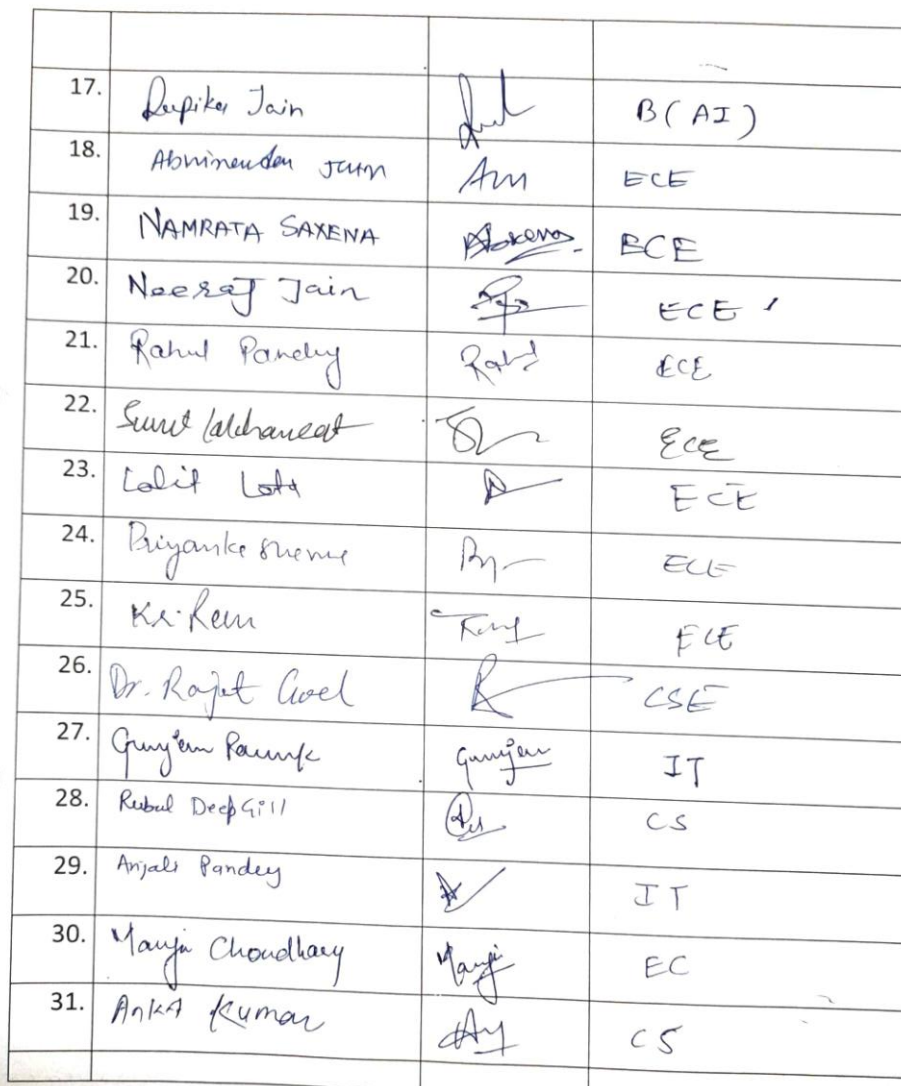 17. Deepika Jain B(AI)
18. Abhinandan Jain Am ECE
19. NAMRATA SAXENA Saxena ECE
20. Neeraj Jain ECE
21. Rahul Pandey Rahul ECE
22. Sumit ECE
23. Lalit Lata ECE
24. Priyanka Sharma ECE
25. Kr. Ram ECE
26. Dr. Rajat Goel CSE
27. Gunjan Gunjan IT
28. Rubal Deep Gill CS
29. Anjali Pandey IT
30. Manju Choudhary Manju EC
31. Ankit Kumar CS